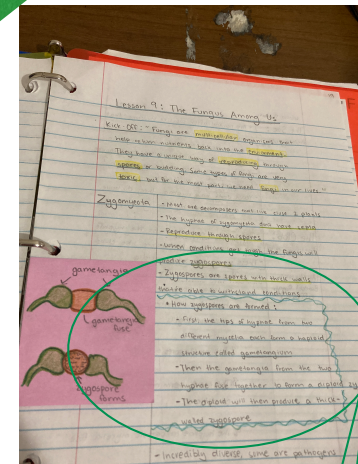 Lesson 9: The Fungus Among Us
Kick Off: "Fungi are multicellular organisms that
help return nutrients back into the environment.
They have a unique way of reproducing through
spores or budding. Some types of fungi are very
toxic, but for the most part, we need fungi in our lives."
Zygomycota
- Most are decomposers and live close to plants
- The hyphae of zygomycota don't have septa
- Reproduce through spores
- When conditions are tough the fungus will
produce zygospores
- Zygospores are spores with thick walls
that're able to withstand conditions
• How zygospores are formed:
- First, the tips of hyphae from two
different mycelia each form a haploid
structure called gametangium
- Then the gametangia from the two
hyphae fuse together to form a diploid
- The diploid will then produce a thick-
walled zygospore
- Incredibly diverse, some are pathogens
gametangia
gametangia
fuse
zygospore
forms